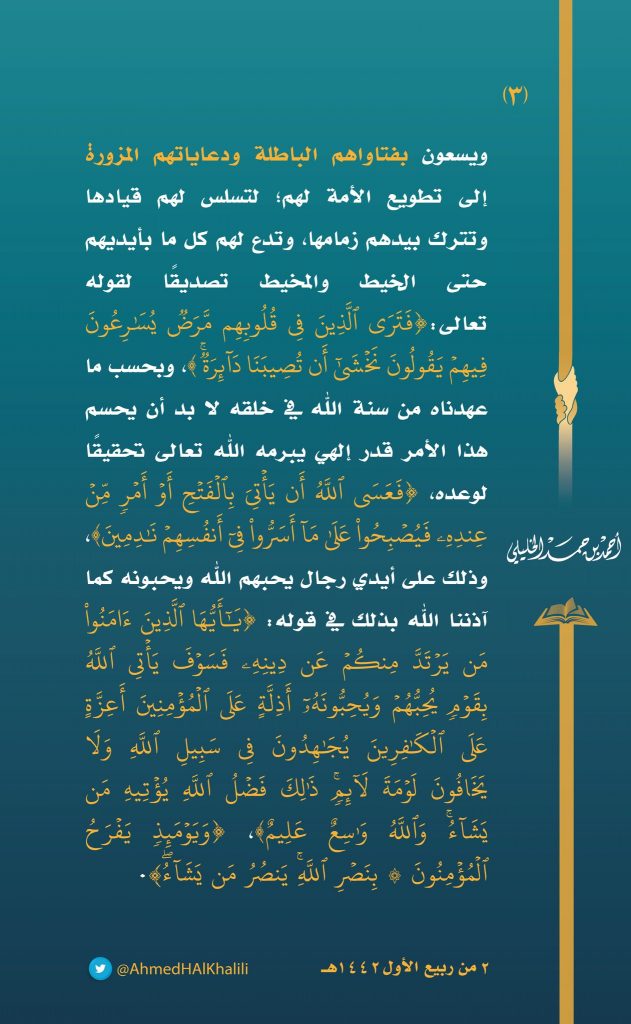 (٣)
ويسعون بفتاواهم الباطلة ودعاياتهم المزورة
إلى تطويع الأمة لهم؛ لتسلس لهم قيادها
وتترك بيدهم زمامها، وتدع لهم كل ما بأيديهم
حتى الخيط والمخيط تصديقًا لقوله
تعالى: ﴿فَتَرَى ٱلَّذِينَ فِى قُلُوبِهِم مَّرَضٌ يُسَٰرِعُونَ
فِيهِمْ يَقُولُونَ نَخْشَىٰٓ أَن تُصِيبَنَا دَآئِرَةٌ ۚ﴾، وبحسب ما
عهدناه من سنة الله في خلقه لا بد أن يحسم
هذا الأمر قدر إلهي يبرمه الله تعالى تحقيقًا
لوعده، ﴿فَعَسَى ٱللَّهُ أَن يَأْتِىَ بِٱلْفَتْحِ أَوْ أَمْرٍ مِّنْ
عِندِهِۦ فَيُصْبِحُوا۟ عَلَىٰ مَآ أَسَرُّوا۟ فِىٓ أَنفُسِهِمْ نَٰدِمِينَ﴾،
وذلك على أيدي رجال يحبهم الله ويحبونه كما
آذننا الله بذلك في قوله: ﴿يَٰٓأَيُّهَا ٱلَّذِينَ ءَامَنُوا۟
مَن يَرْتَدَّ مِنكُمْ عَن دِينِهِۦ فَسَوْفَ يَأْتِى ٱللَّهُ
بِقَوْمٍ يُحِبُّهُمْ وَيُحِبُّونَهُۥٓ أَذِلَّةٍ عَلَى ٱلْمُؤْمِنِينَ أَعِزَّةٍ
عَلَى ٱلْكَٰفِرِينَ يُجَٰهِدُونَ فِى سَبِيلِ ٱللَّهِ وَلَا
يَخَافُونَ لَوْمَةَ لَآئِمٍ ۚ ذَٰلِكَ فَضْلُ ٱللَّهِ يُؤْتِيهِ مَن
يَشَآءُ ۚ وَٱللَّهُ وَٰسِعٌ عَلِيمٌ﴾، ﴿وَيَوْمَئِذٍ يَفْرَحُ
ٱلْمُؤْمِنُونَ ۞ بِنَصْرِ ٱللَّهِ ۚ يَنصُرُ مَن يَشَآءُ ۖ﴾.
أحمد بن حمد الخليلي
٢ من ربيع الأول ١٤٤٢هـ
@AhmedHAlKhalili